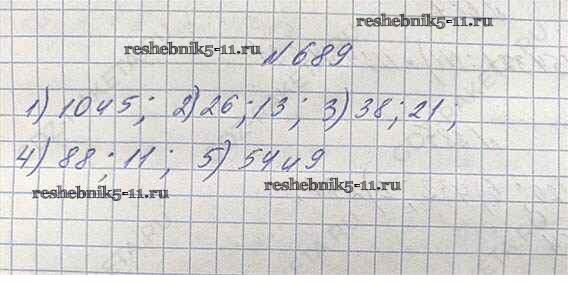 reshebnik5-11.ru
reshebnik5-11.ru
№689
1) 10 и 5; 2) 26; 13; 3) 38; 21;
4) 88; 11; 5) 54 и 9
reshebnik5-11.ru
reshebnik5-11.ru